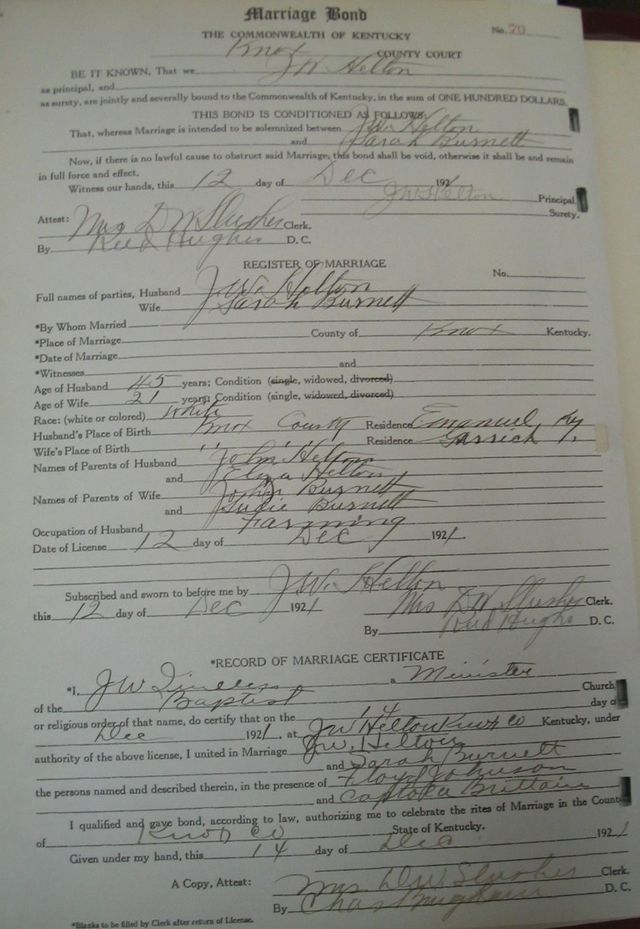 Marriage Bond
THE COMMONWEALTH OF KENTUCKY No. 70
Knox COUNTY COURT
BE IT KNOWN, That we JW Helton
as principal, and
as surety, are jointly and severally bound to the Commonwealth of Kentucky, in the sum of ONE HUNDRED DOLLARS.
THIS BOND IS CONDITIONED AS FOLLOWS
That, whereas Marriage is intended to be solemnized between J.W. Helton
and Sarah Burnett
Now, if there is no lawful cause to obstruct said Marriage, this bond shall be void, otherwise it shall be and remain
in full force and effect.
Witness our hands, this 12 day of Dec 1921
JW Helton Principal
Surety.
Attest: Mrs D W Slusher Clerk.
By Hughes D. C.
REGISTER OF MARRIAGE
No.
Full names of parties, Husband J.W. Helton
Wife Sarah Burnett
*By Whom Married
*Place of Marriage County of Knox Kentucky.
*Date of Marriage
*Witnesses and
Age of Husband 45 years; Condition (single, widowed, divorced)
Age of Wife 21 years; Condition (single, widowed, divorced)
Race: (white or colored) White
Husband's Place of Birth Knox County Residence Emanuel, Ky
Wife's Place of Birth " " Residence
Names of Parents of Husband John Helton
and Eliza Helton
Names of Parents of Wife John Burnett
and Burnett
Occupation of Husband Farming
Date of License 12 day of Dec 1921
Subscribed and sworn to before me by J.W. Helton
this 12 day of Dec 1921 Mrs D W Slusher Clerk.
By Hughes D. C.
*RECORD OF MARRIAGE CERTIFICATE
*I, JW a Minister
of the Baptist Church,
or religious order of that name, do certify that on the 14 day of
Dec 1921, at JW Helton Co Kentucky, under
authority of the above license, I united in Marriage J.W. Helton
and Sarah Burnett
the persons named and described therein, in the presence of Floyd Johnson
and Brittain
I qualified and gave bond, according to law, authorizing me to celebrate the rites of Marriage in the County
of Knox Co State of Kentucky.
Given under my hand, this 14 day of Dec 1921
A Copy, Attest: Mrs D W Slusher Clerk.
By Chas D. C.
*Blanks to be filled by Clerk after return of License.